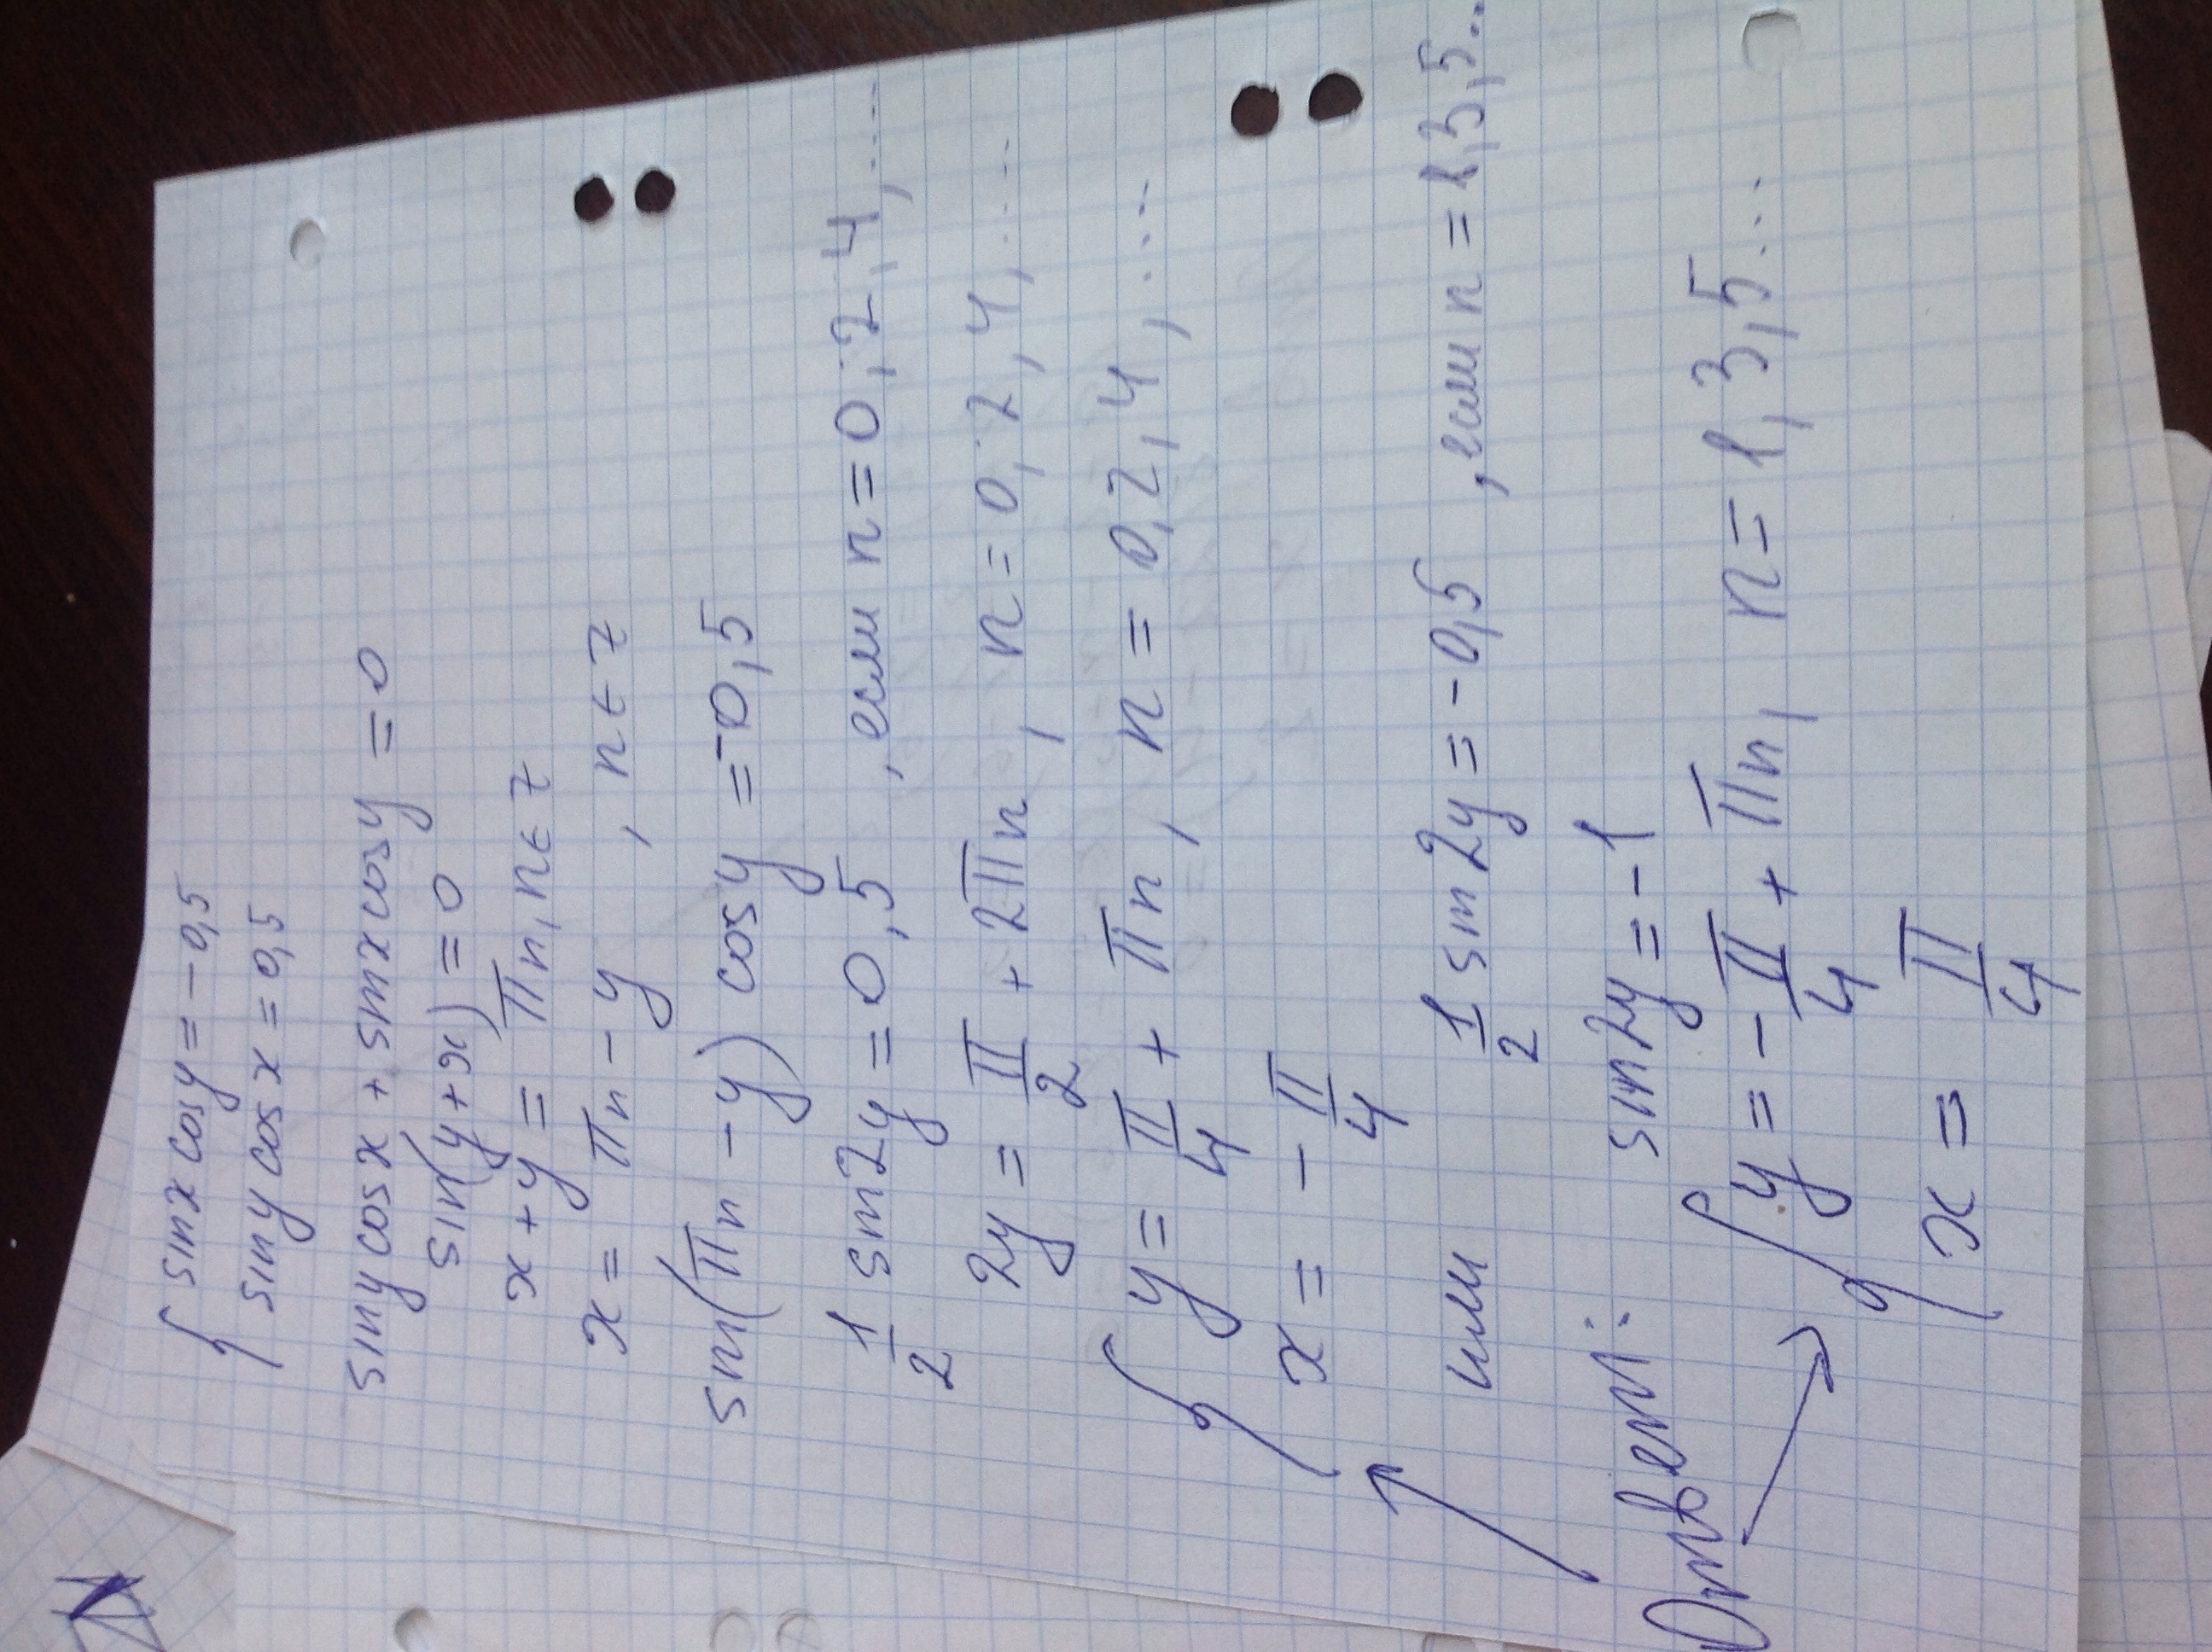 { sinx cosy = -0,5
siny cosx = 0,5
siny cosx + sinx cosy = 0
sin(y+x) = 0
x+y = πn, n∈z
x = πn - y , n∈z
sin(πn - y) cosy = -0,5
1/2 sin2y = 0,5 , если n = 0, 2, 4, ....
2y = π/2 + 2πn , n = 0, 2, 4, ....
{ y = π/4 + πn, n = 0, 2, 4, ....
x = - π/4
или 1/2 sin2y = -0,5 , если n = 1, 3, 5...
sin2y = -1
Ответ: { y = - π/4 + πn, n = 1, 3, 5...
x = π/4